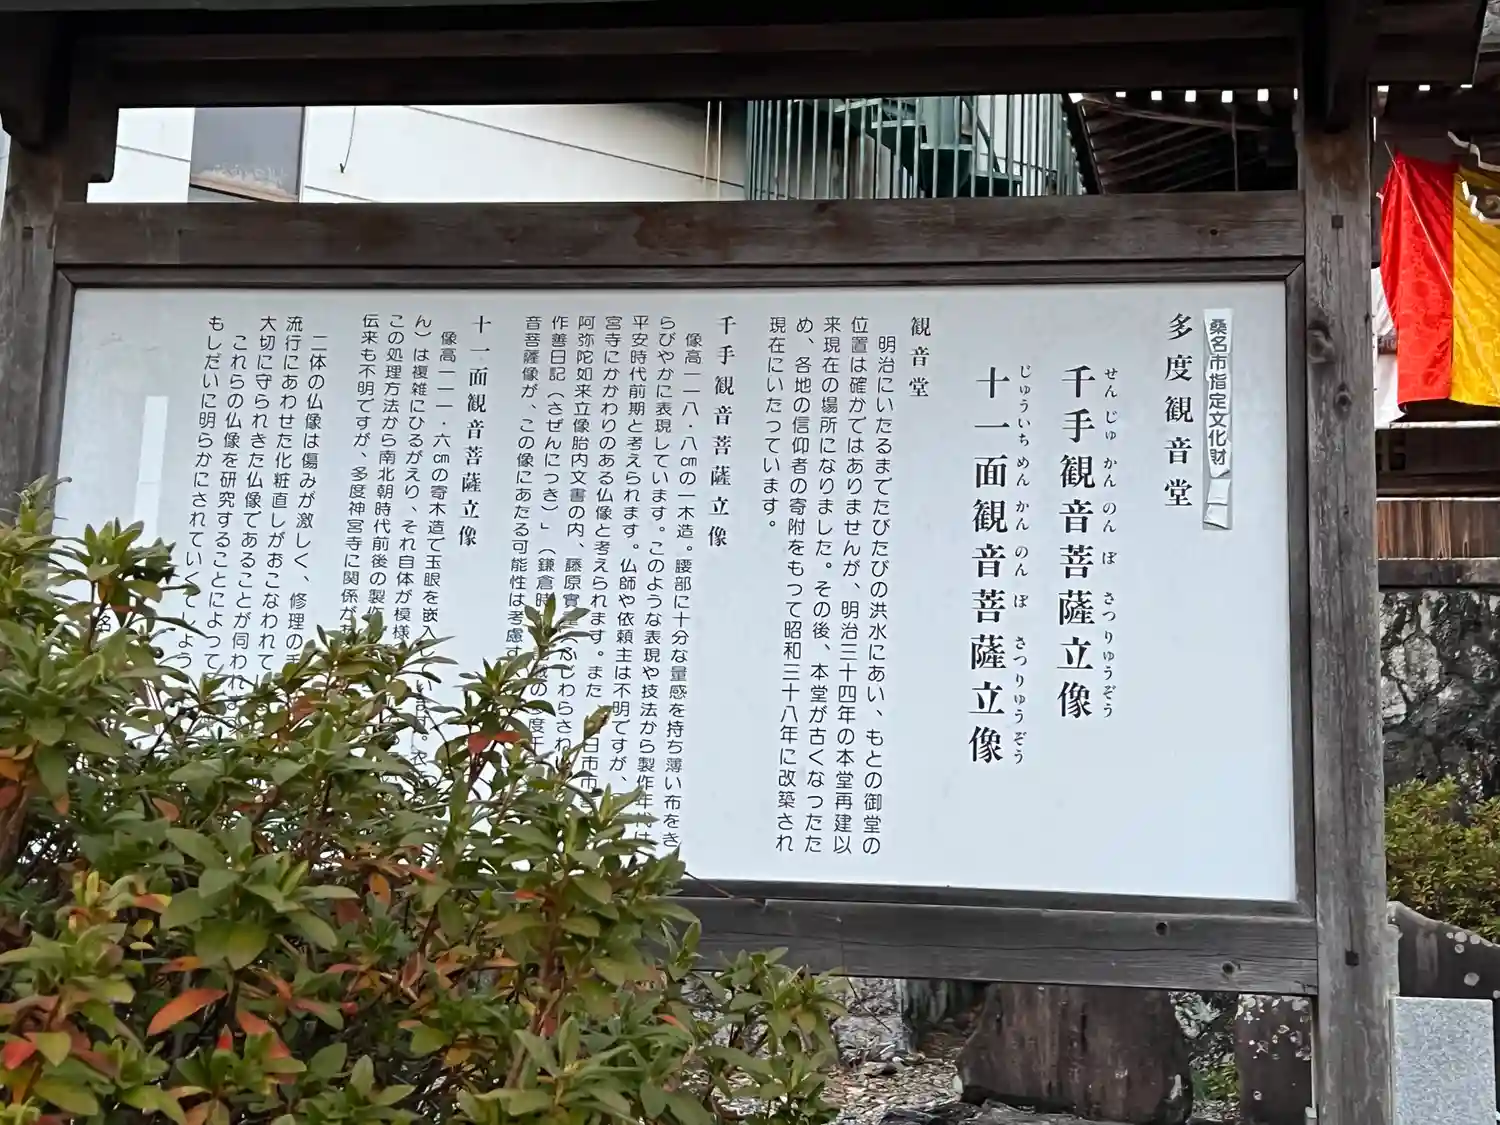 桑名市指定文化財
多度観音堂
せんじゅかんのんぼさつりゅうぞう
千手観音菩薩立像
じゅういちめんかんのんぼさつりゅうぞう
十一面観音菩薩立像
観音堂
明治にいたるまでたびたびの洪水にあい、もとの御堂の
位置は確かではありませんが、明治三十四年の本堂再建以
来現在の場所になりました。その後、本堂が古くなったた
め、各地の信仰者の寄附をもって昭和三十八年に改築され
現在にいたっています。
千手観音菩薩立像
像高一一八・八㎝の一木造。腰部に十分な量感を持ち薄い布をき
らびやかに表現しています。このような表現や技法から製作年代は
平安時代前期と考えられます。仏師や依頼主は不明ですが、
宮寺にかかわりのある仏像と考えられます。また
阿弥陀如来立像胎内文書の内、藤原實
作善日記（さぜんにっき）」（鎌倉時
音菩薩像が、この像にあたる可能性は考慮す
十一面観音菩薩立像
像高一一一・六㎝の寄木造で玉眼を嵌入
ん）は複雑にひるがえり、それ自体が模様
この処理方法から南北朝時代前後の製作
伝来も不明ですが、多度神宮寺に関係が
二体の仏像は傷みが激しく、修理の
流行にあわせた化粧直しがおこなわれて
大切に守られきた仏像であることが伺われ
これらの仏像を研究することによって
もしだいに明らかにされていくでしょう
名